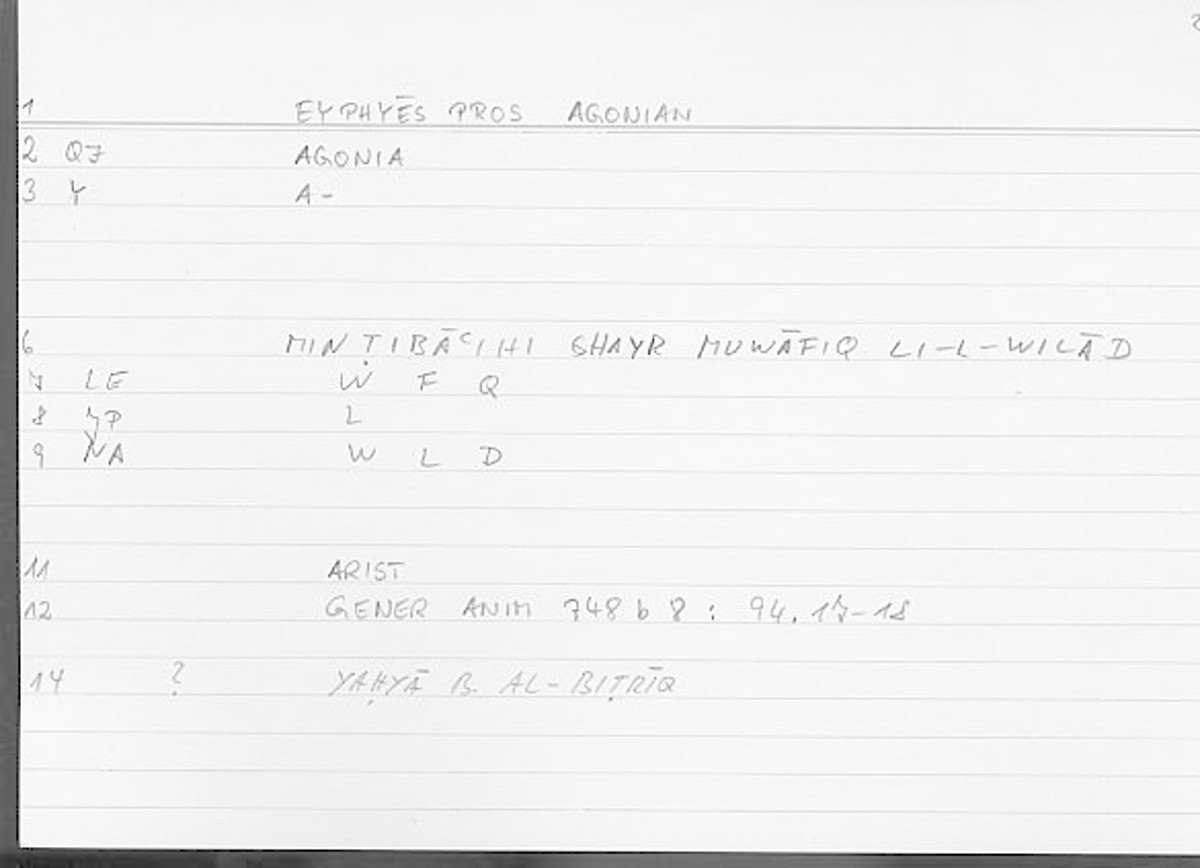 1 EYPHYĒS PROS AGONIAN
2 QJ AGONIA
3 Y A-
6 MIN ṬIBĀᶜIHI GHAYR MUWĀFIQ LI-L-WILĀD
7 LE W F Q
8 JP L
9 NA W L D
11 ARIST
12 GENER ANIM 748 b 8 : 94. 17-18
14 ? YAḤYĀ B. AL-BIṬRĪQ